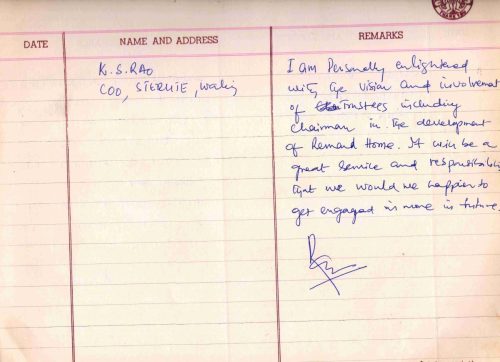 DATE
NAME AND ADDRESS
REMARKS
K. S. RAO
COO, STERLITE,
I am Personally enlightened
with the vision and involvement
of Trustees including
Chairman in the development
of Remand Home. It will be a
great service and responsibility
that we would be happier to
get engaged in more in future.